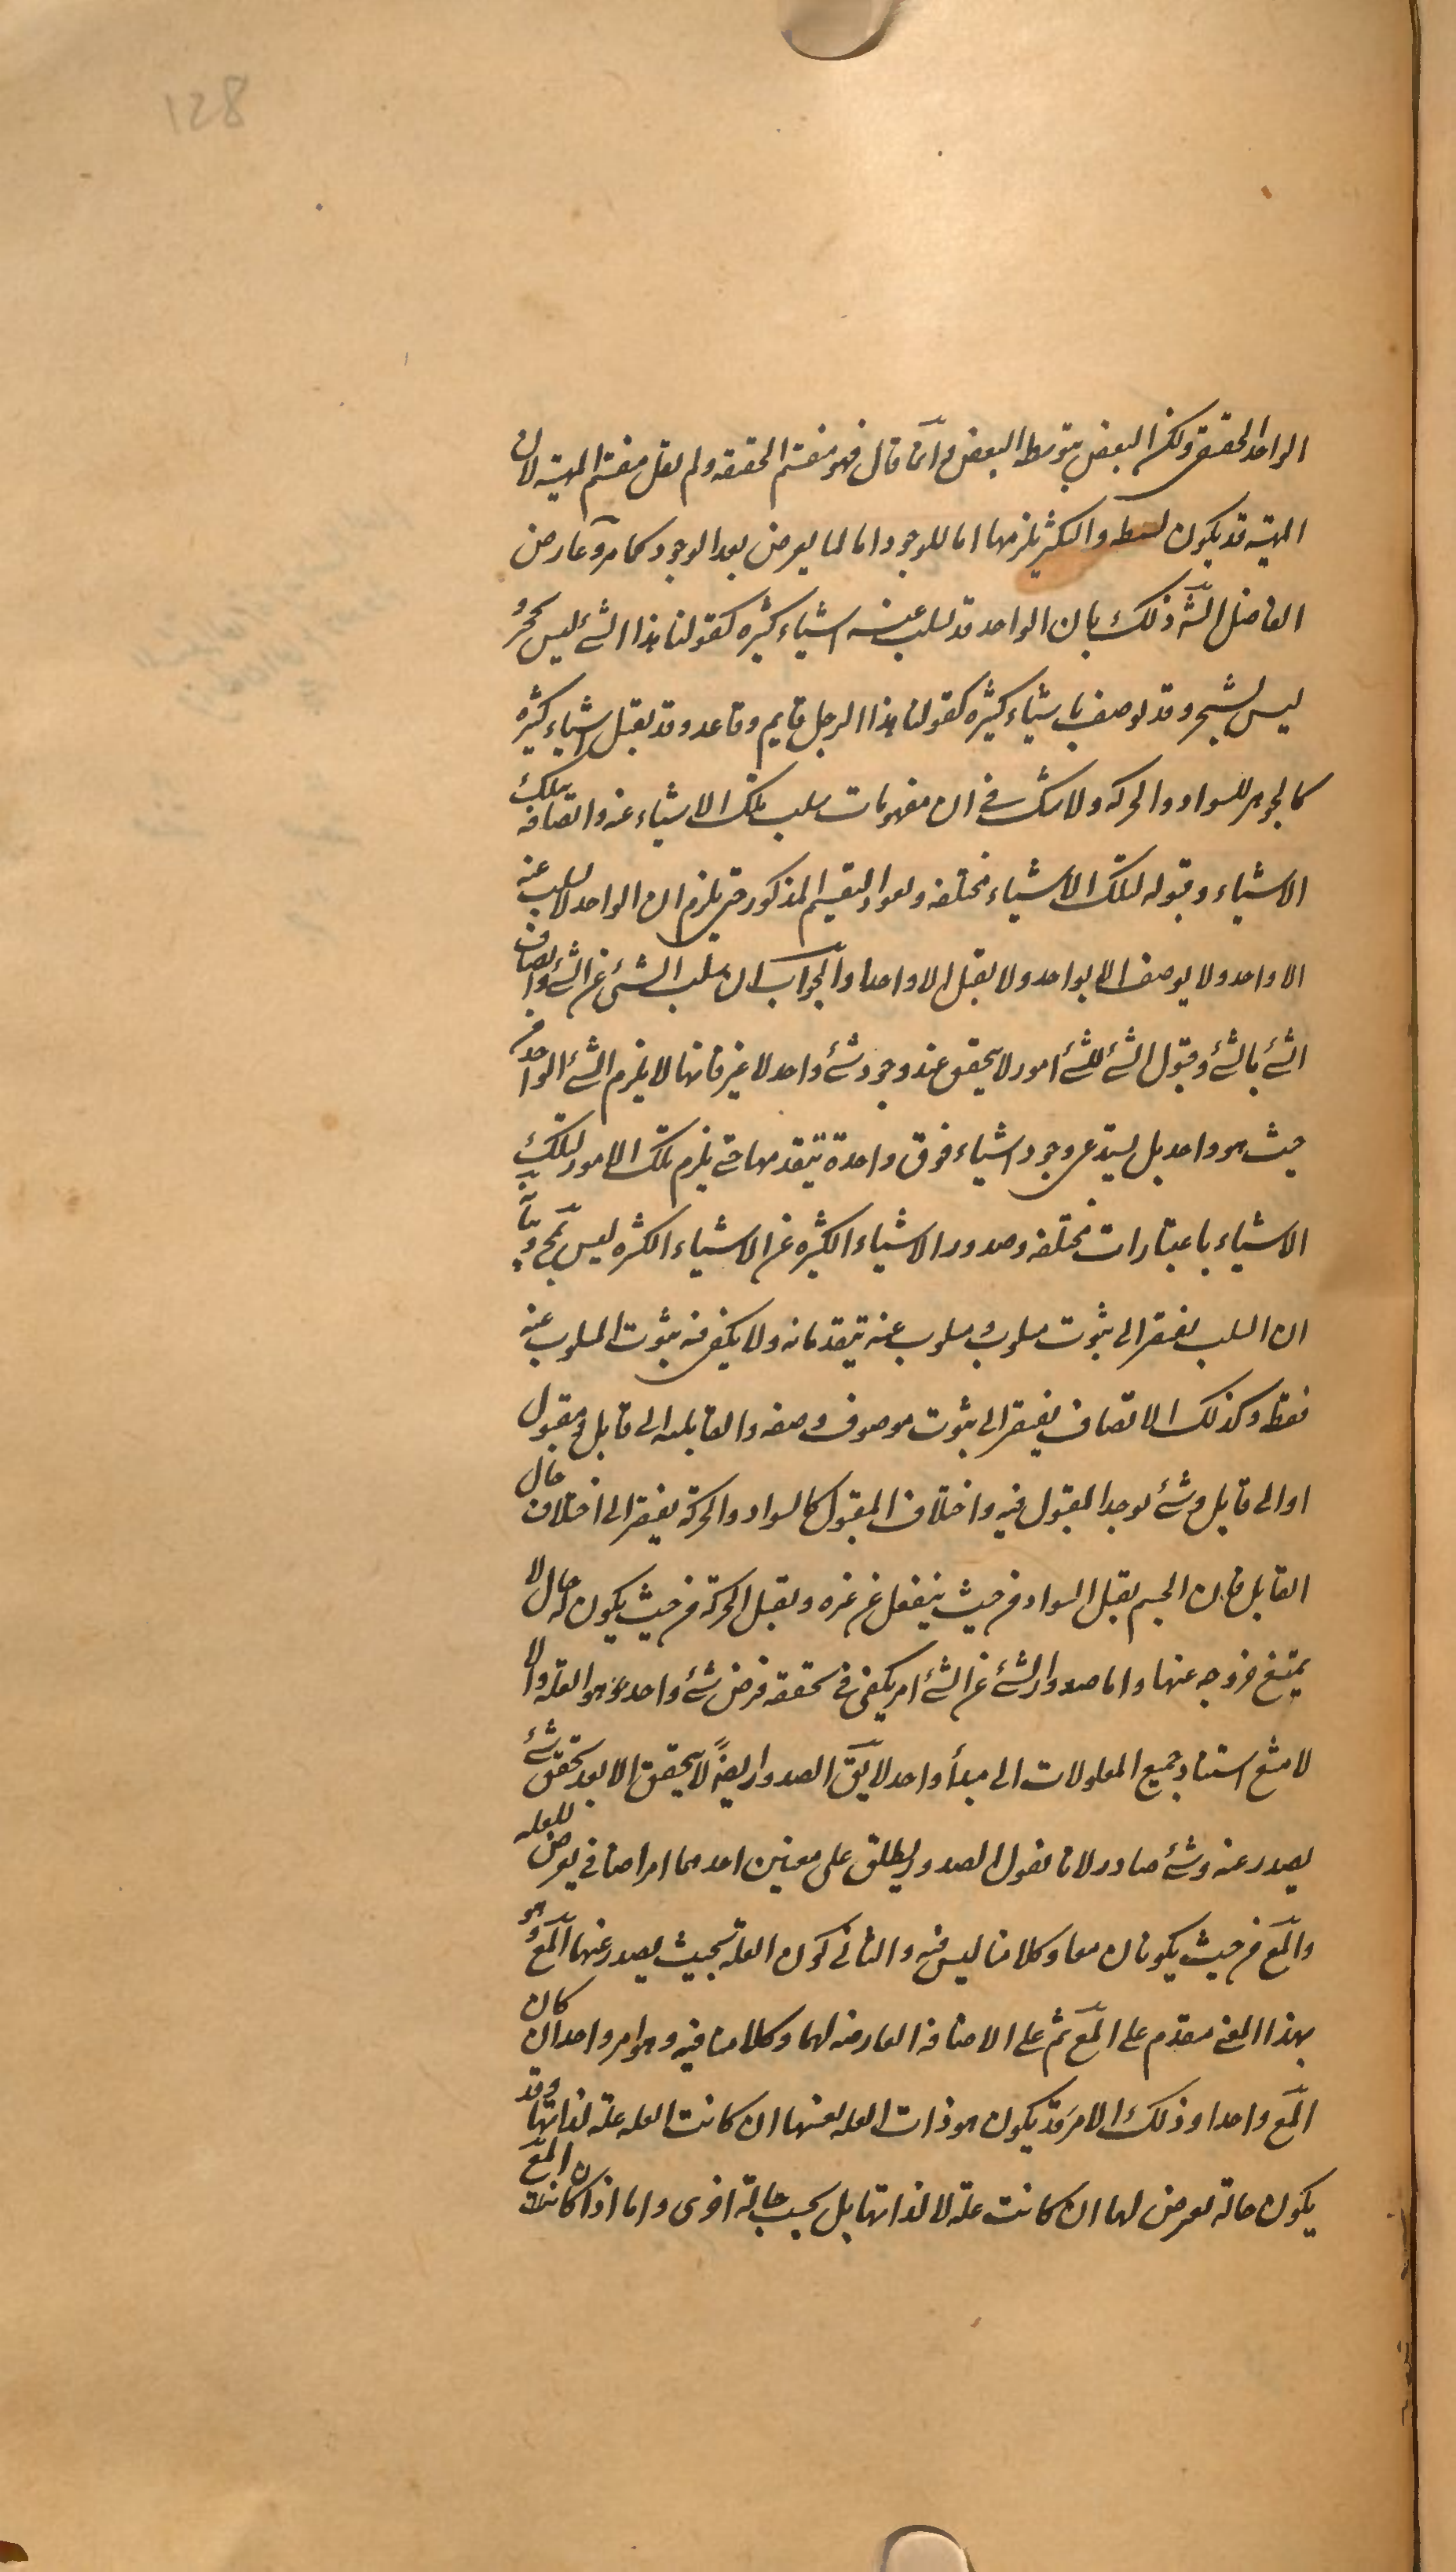 128
الواحد الحقيقى ولكن البعض بتوسط البعض و انّما قال فهو منقسم الحقيقه ولم يقل منقسم المهيّه لان
المهيّه قد يكون بسيطه والتكثر يلزمها اما للوجود اما لما يعرض بعد الوجود كما مرّ وعارض
الفاضل الشّه ذلك بان الواحد قد يسلب عنه اشياء كثيره كقولنا هذا الشئ ليس بحجر و
ليس بشجر وقد يوصف باشياء كثيره كقولنا هذا الرجل قايم وقاعد وقد يقبل اشياء كثيره
كالجوهر للسواد والحركه ولا شك فى ان مفهومات سلب تلك الاشياء عنه واتصافه بتلك
الاشياء وقبوله لتلك الاشياء مختلفه ويعود التقسيم المذكور حتى يلزم ان الواحد لا يسلب عنه
الا واحد ولا يوصف الا بواحد ولا يقبل الا واحدا والجواب ان سلب الشئ عن الشئ واتصاف
الشئ بالشئ وقبول الشئ للشئ امور لا يتحقق عند وجود شئ واحد لا غير فانها لا يلزم الشئ الواحد من
حيث هو واحد بل يستدعى وجود اشياء فوق واحدة تتقدمها حتى يلزم تلك الامور لتلك
الاشياء باعتبارات مختلفه وصدور الاشياء الكثيره عن الاشياء الكثيره ليس بمح وبيانه
ان السلب يفتقر الى ثبوت مسلوب و مسلوب عنه يتقدمانه ولا يكفى فيه ثبوت المسلوب عنه
فقط وكذلك الاتصاف يفتقر الى ثبوت موصوف وصفه والقابليه الى قابل ومقبول
او الى قابل وشئ يوجد المقبول فيه واختلاف المقبول كالسواد والحركة يفتقر الى اختلاف حال
القابل فان الجسم يقبل السواد من حيث ينفعل عن غيره ويقبل الحركة من حيث يكون له حال لا
يمتنع خروجه عنها واما صدور الشئ عن الشئ امر يكفى فى تحققه فرض شئ واحد هو العله والا
لامتنع استناد جميع المعلولات الى مبدأ واحد لا يقّ الصدور ايضًا لا يتحقق الا بعد تحقق شئ
يصدر عنه وشئ صادر لانا نقول الصدور يطلق على معنيين احدهما امر اضافى يعرض للعله
والمّع من حيث يكونان معا وكلامنا ليس فيه والثانى كون العله بحيث يصدر عنها المّع وهو
بهذا المعنى مقدم على المّع ثم على الاضافه العارضه لهما وكلامنا فيه وهو امر واحد ان كان
المّع واحدا وذلك الامر قد يكون هو ذات العله بعينها ان كانت العله علة لذاتها وقد
يكون حالة تعرض لها ان كانت علة لا لذاتها بل بحسب حالة اخرى واما اذا كان المّع